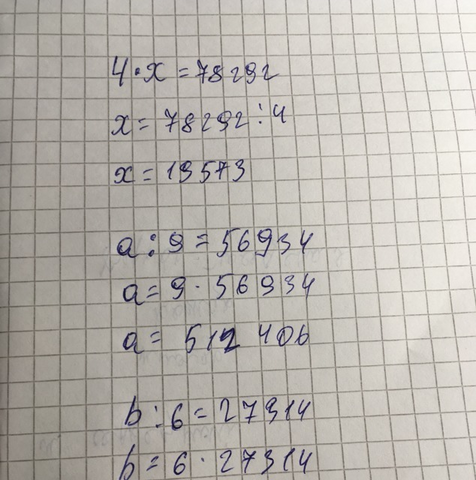 4·x=78292
x=78292:4
x=19573
a:9=56934
a=9·56934
a=512 406
b:6=27314
b=6·27314